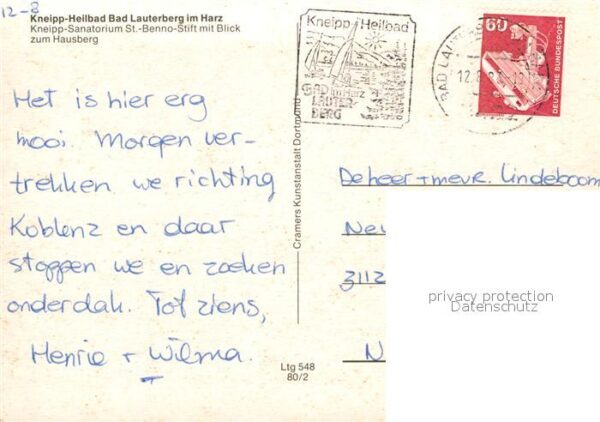 12-8
Kneipp-Heilbad Bad Lauterberg im Harz
Kneipp-Sanatorium St.-Benno-Stift mit Blick
zum Hausberg
Het is hier erg
mooi. Morgen ver-
trekken we richting
Koblenz en daar
stoppen we en zoeken
onderdak. Tot ziens,
Henrie + Wilma.
Cramers Kunstanstalt Dortmund
Ltg 548
80/2
Kneipp-Heilbad
BAD im Harz
LAUTER-
BERG
BAD LAUT
12.8.
60
DEUTSCHE BUNDESPOST
De heer + mevr. Lindeboom
3112
N
privacy protection
Datenschutz